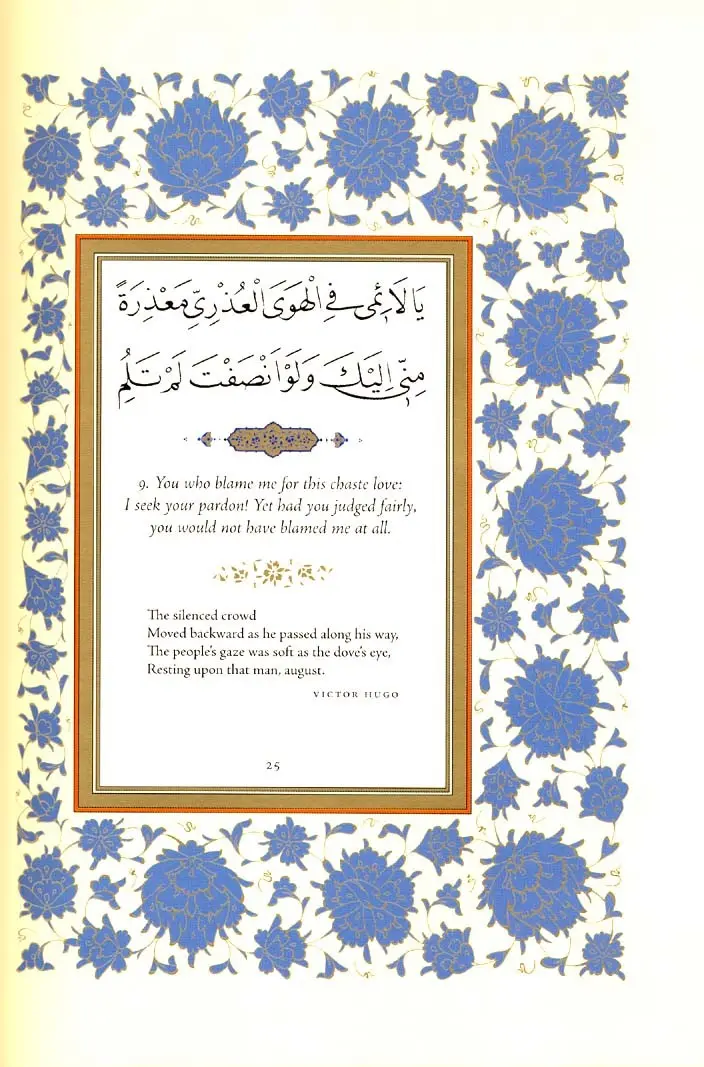 يَا لَائِمِي فِي الْهَوَى الْعُذْرِيِّ مَعْذِرَةً
مِنِّي إِلَيْكَ وَلَوْ أَنْصَفْتَ لَمْ تَلُمِ
9. You who blame me for this chaste love:
I seek your pardon! Yet had you judged fairly,
you would not have blamed me at all.
The silenced crowd
Moved backward as he passed along his way,
The people's gaze was soft as the dove's eye,
Resting upon that man, august.
VICTOR HUGO
25